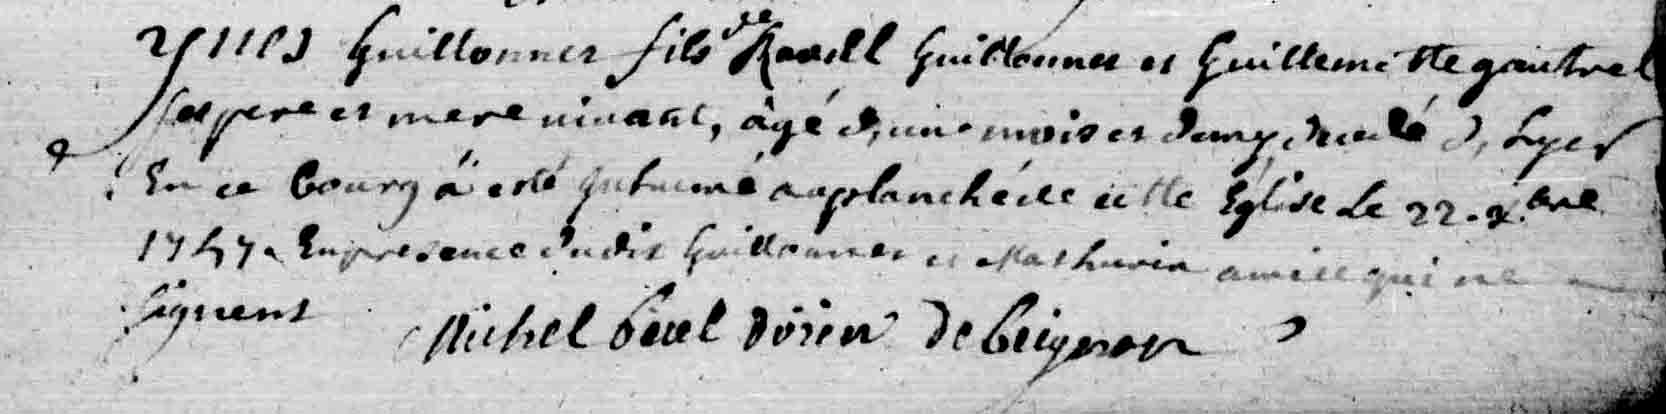 yues Guillonnet fils de Raoull Guillonnet et Guillemette gautrel
ses pere et mere vivant, âgé d'un mois et demy, decedé d, hyer
En ce bourg a esté inhumé au planché de cette Eglise Le 22. xbre
1747. En presence dudit Guillonnet et Mathurin qui ne
signent Michel beiel dorien de beignon